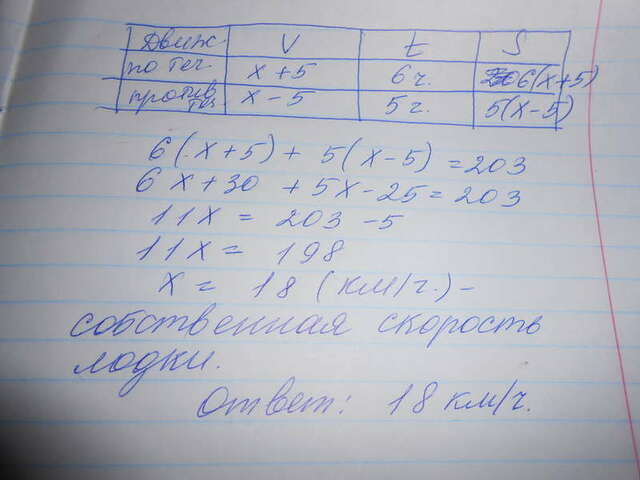 Движ. V t S
по теч. x+5 6ч. 6(x+5)
против теч. x-5 5ч. 5(x-5)
6(x+5) + 5(x-5) = 203
6x+30 +5x-25 = 203
11x = 203 -5
11x = 198
x = 18 (км/ч.) -
собственная скорость
лодки.
Ответ: 18 км/ч.